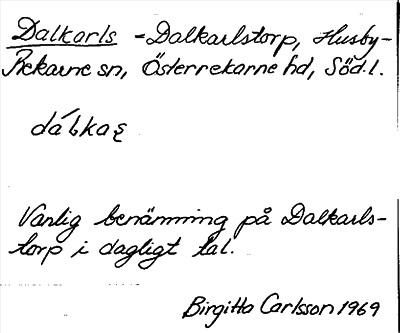 Dalkarls - Dalkarlstorp, Husby-
Rekarne sn, Österrekarne hd, Söd.l.
Vanlig benämning på Dalkarls-
torp i dagligt tal.
Birgitta Carlsson 1969